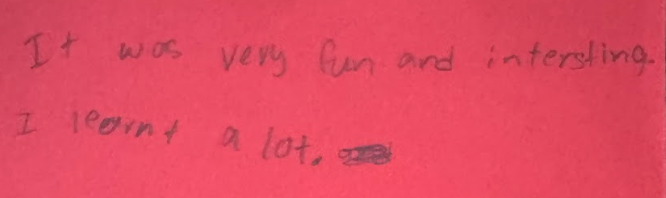 It was very fun and intersting.
I learnt a lot.